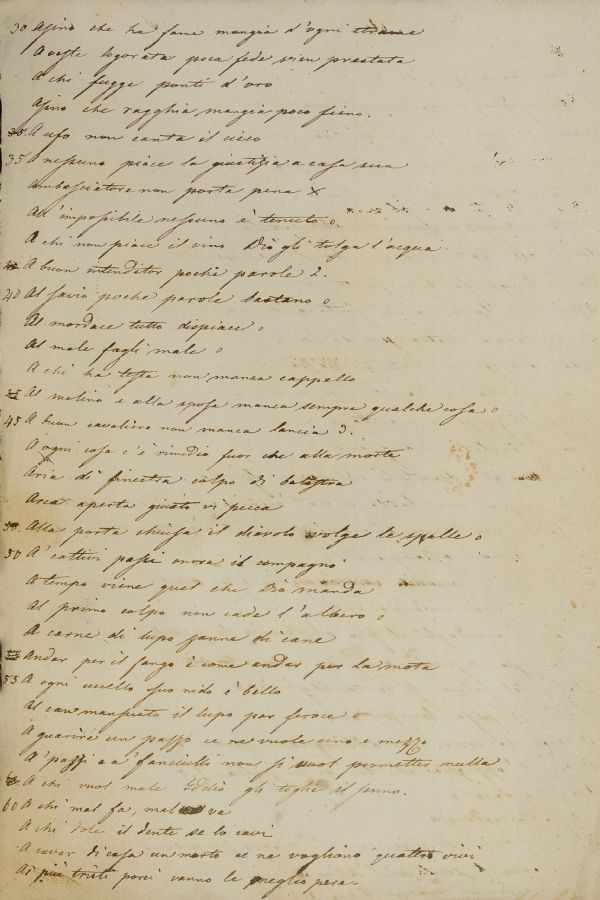 30 Asino che ha fame mangia d'ogni strame
A veste logorata poca fede vien prestata
A chi fugge ponti d'oro
Asino che ragghia, mangia poco fieno.
A ufo non canta il cieco
35 A nessuno piace la giustizia a casa sua
Ambasciatore non porta pena x
All'impossibile nessuno è tenuto o
A chi non piace il vino Dio gli tolga l'acqua
A buon intenditor poche parole 2.
40 Al savio poche parole bastano o
Al mordace tutto dispiace o
Al male fagli male o
A chi ha testa non manca cappello
Al molino e alla sposa manca sempre qualche cosa o
45 A buon cavaliero non manca lancia 3.
A ogni cosa c'è rimedio fuor che alla morte
Aria di finestra colpo di balestra
Arca aperta giusto vi pecca
Alla porta chiusa il diavolo volge le spalle o
50 A' cattivi passi onora il compagno
A tempo viene quel che Dio manda
Al primo colpo non cade l'albero o
A carne di lupo zanne di cane
Andar per il fango è come andar per la mota
55 A ogni uccello suo nido è bello
Al can mansueto il lupo par feroce o
A guarire un pazzo ce ne vuole uno e mezzo
A' pazzi e a' fanciulli non si vuol prometter nulla
A chi vuol male Iddio gli toglie il senno.
60 A chi mal fa, mal va
A chi dole il dente se lo cavi
A cavar di casa un morto ce ne vogliono quattro vivi
Ai più tristi porci vanno le meglio pere.